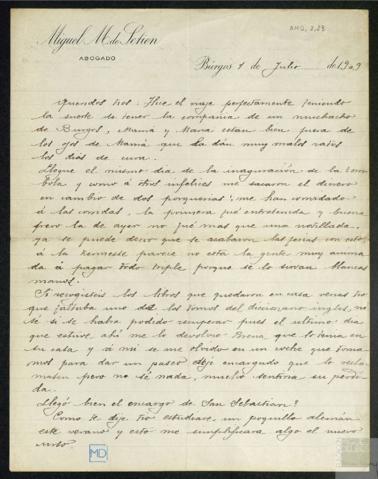 AHO, 2,23
Miguel M. de Setien
ABOGADO
Búrgos 1 de Julio de 1909
Queridos tios: Hice el viaje perfectamente teniendo
la suerte de tener la compania de un muchacho
de Burgos, Mamá y Maria estan bien fuera de
los ojos de Mamá que la dán muy malos ratos
los dias de cura.
Llegue el mismo dia de la inaguración de la tom
bola y como á otros infelices me sacaron el dinero
en cambio de dos porquerias; me han convidado
á las corridas, la primera fué entretenida y buena
pero la de ayer no fué mas que una novillada,
ya se puede decir que se acabaron las ferias con
á la Kermesse parece no está la gente muy anima
da á pagar todo triple porque se lo sirvan blancas
manos.
Si recogisteis los libros que quedaron en casa verias tio
que faltaba uno de los tomos del diccionario ingles, no
sé si se habrá podido recuperar pues el ultimo dia
que estuve, ahi me lo devolvio que lo tenia en
su casa y á mi se me olvidó en un coche que toma
mos para dar un paseo dejé encargado que lo recla
masen pero no sé nada, mucho sentiria su perdi
da.
Llegó bien el encargo de San Sebastian?
Como te dije tio estudiare un poquillo alemán
este verano y esto me simplificara algo el nuevo
MD